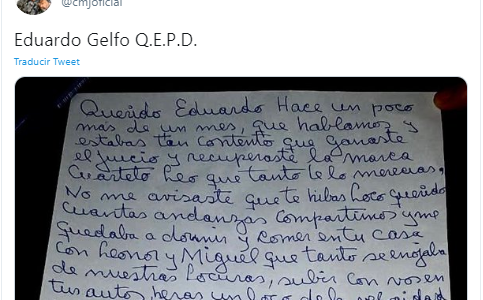 @cmjoficial
Eduardo Gelfo Q.E.P.D.
Traducir Tweet
Querido Eduardo Hace un poco
mas de un mes, que hablamos y
estabas tan contento que ganaste
el juicio y recuperaste la marca
Cuarteto Leo que tanto te lo merecias,
No me avisaste que te hibas Loco querido
Cuantas andanzas compartimos y me
quedaba a dormir y comer en tu casa
Con Leonor y Miguel que tanto se enojaba
de nuestras locuras, subir con vos en
tus autos, heras un loco de la velocidad